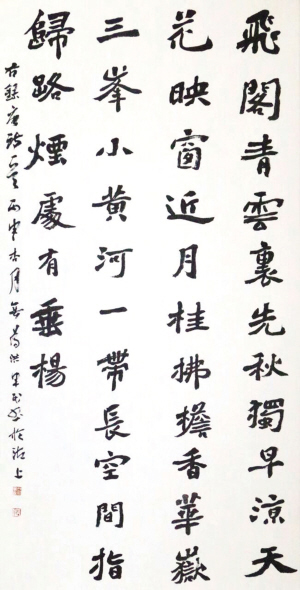 飛閣青雲裏先秋獨早涼天
花映窗近月桂拂檐香華嶽
三峯小黃河一帶長空間指
歸路煙處有垂楊
右錄唐詩一首丙申